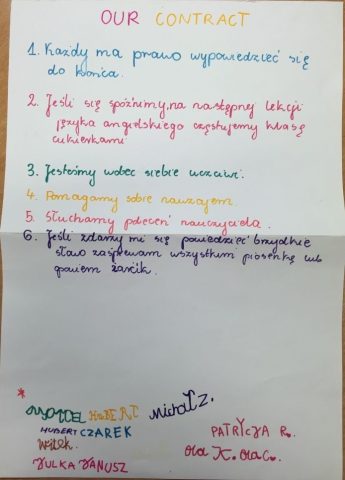 OUR CONTRACT
1. Każdy ma prawo wypowiedzieć się
do końca.
2. Jeśli się spóźnimy, na następnej lekcji
języka angielskiego częstujemy klasę
cukierkami
3. Jesteśmy wobec siebie uczciwi.
4. Pomagamy sobie nawzajem.
5. Słuchamy poleceń nauczyciela.
6. Jeśli zdarzy mi się powiedzieć brzydkie
słowo zaśpiewam wszystkim piosenkę lub
powiem żarcik.
*
HUBERT Michał Z.
HUBERT CZAREK PATRYCJA R.
Wojtek. Ola K. Ola C.
JULKA JANUSZ